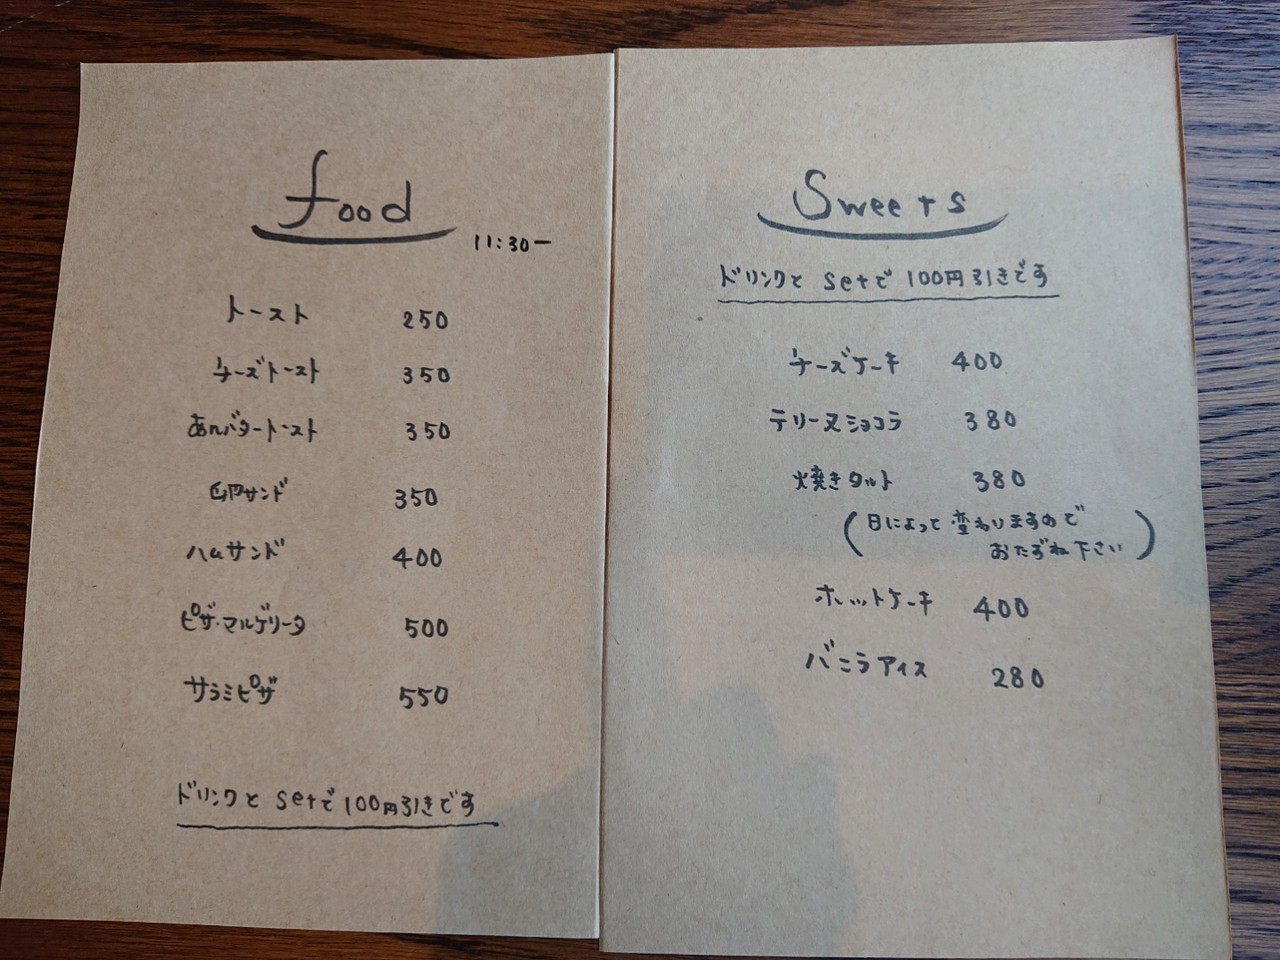 food
11:30ー
トースト 250
チーズトースト 350
あんバタートースト 350
卵サンド 350
ハムサンド 400
ピザ・マルゲリータ 500
サラミピザ 550
ドリンクと setで100円引きです
Sweets
ドリンクと setで 100円引きです
チーズケーキ 400
テリーヌショコラ 380
焼きタルト 380
(日によって変わりますので
おたずね下さい)
ホットケーキ 400
バニラアイス 280